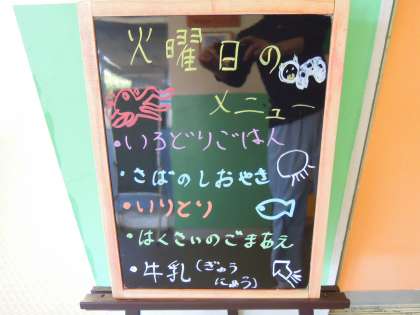 火曜日の
メニュー
・いろどりごはん
・さばのしおやき
・いりとり
・はくさいのごまあえ
・牛乳(ぎゅう
にゅう)